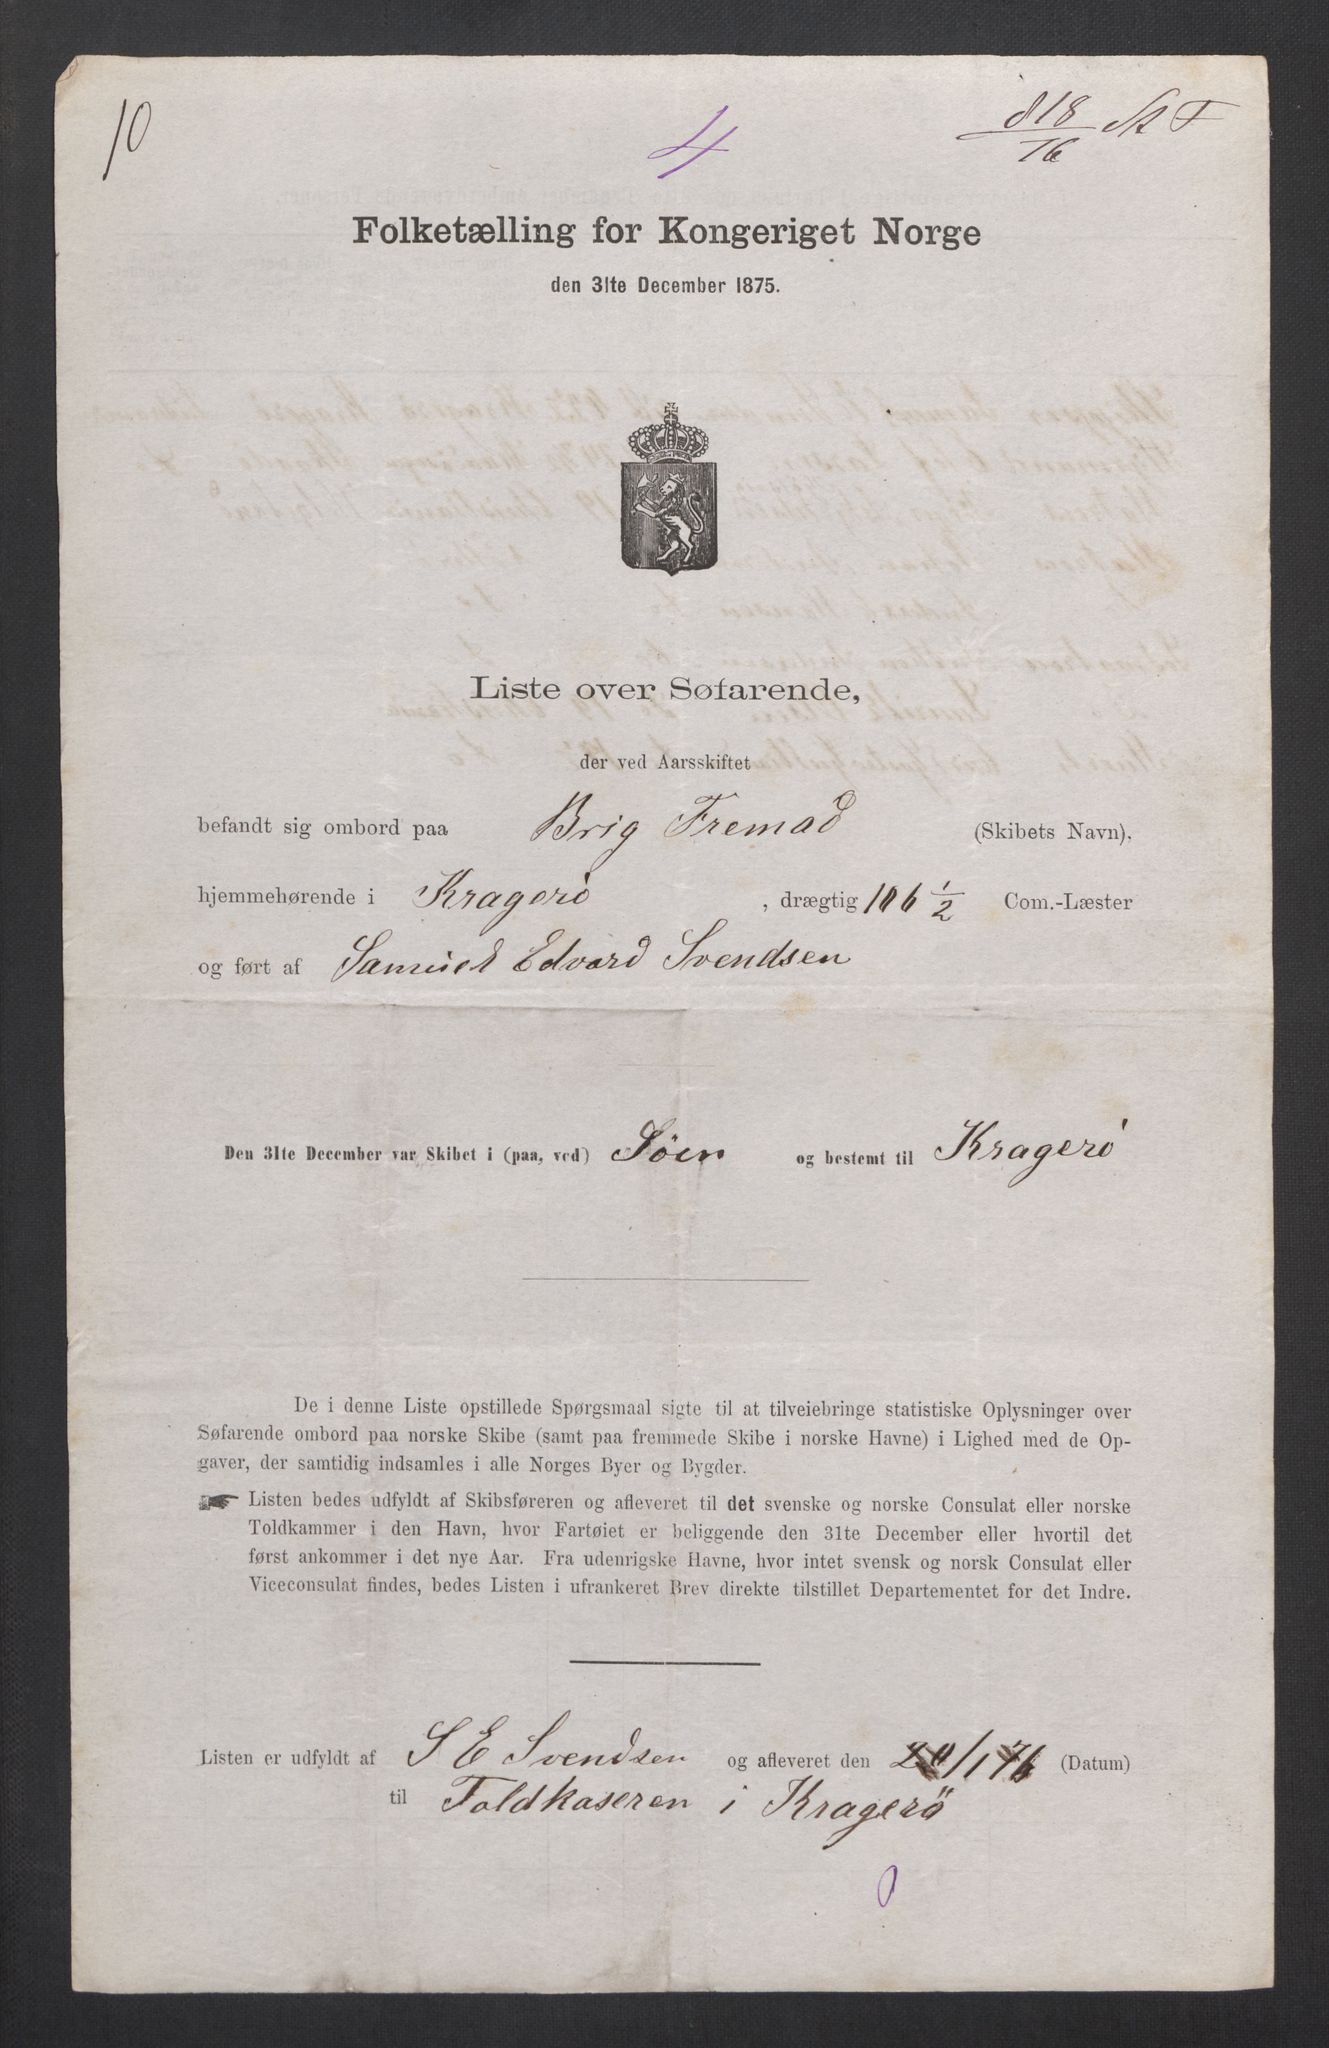 10
4
818/76
Folketælling for Kongeriget Norge
den 31te December 1875.
Liste over Søfarende,
der ved Aarsskiftet
befandt sig ombord paa Brig Fremad (Skibets Navn),
hjemmehørende i Kragerö, drægtig 106 1/2 Com.-Læster
og ført af Samuel Edvard Svendsen
Den 31te December var Skibet i (paa, ved) Söen og bestemt til Kragerö
De i denne Liste opstillede Spørgsmaal sigte til at tilveiebringe statistiske Oplysninger over
Søfarende ombord paa norske Skibe (samt paa fremmede Skibe i norske Havne) i Lighed med de Op-
gaver, der samtidig indsamles i alle Norges Byer og Bygder.
☛ Listen bedes udfyldt af Skibsføreren og afleveret til det svenske og norske Consulat eller norske
Toldkammer i den Havn, hvor Fartøiet er beliggende den 31te December eller hvortil det
først ankommer i det nye Aar. Fra udenrigske Havne, hvor intet svensk og norsk Consulat eller
Viceconsulat findes, bedes Listen i ufrankeret Brev direkte tilstillet Departementet for det Indre.
Listen er udfyldt af S E Svendsen og afleveret den 20/1 76 (Datum)
til Toldkaseren i Kragerö